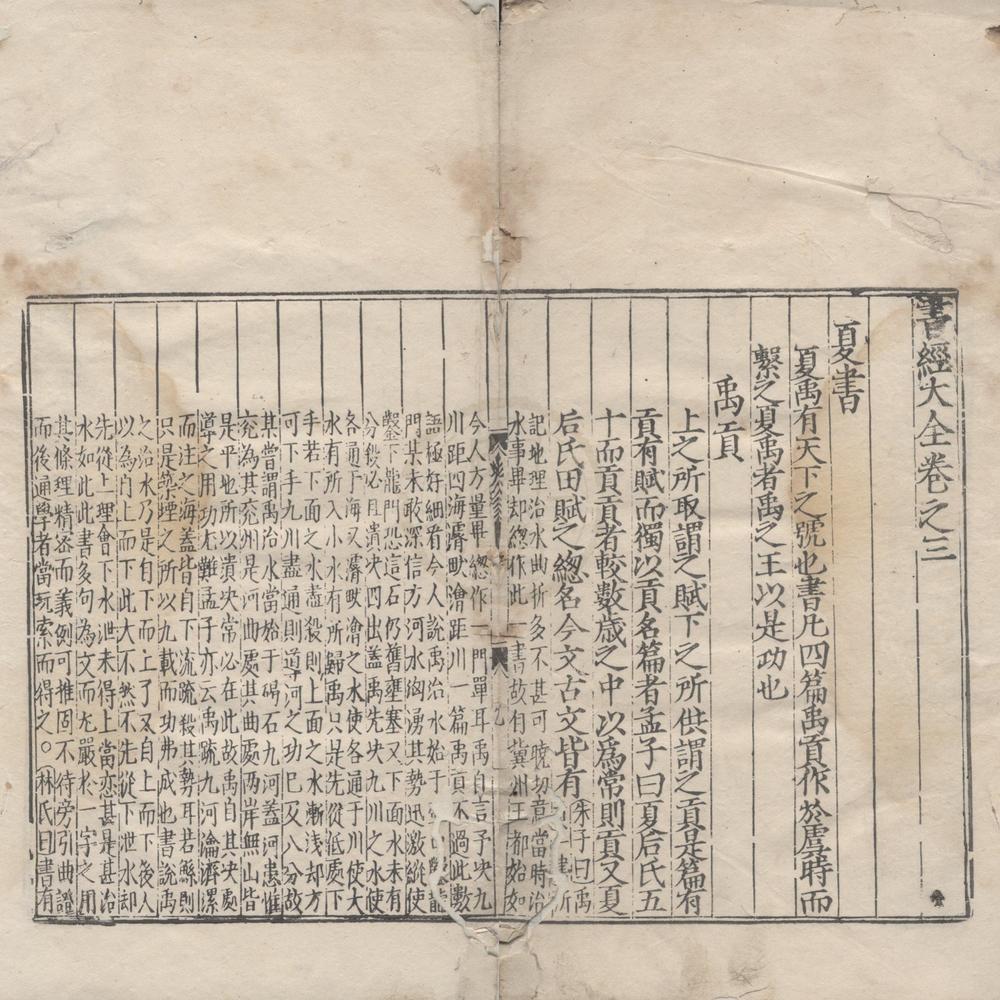 書經大全卷之三
夏書
夏禹有天下之號也書凡四篇禹貢作於虞時而
繫之夏禹者禹之王以是功也
禹貢
上之所取謂之賦下之所供謂之貢是篇有
貢有賦而獨以貢名篇者孟子曰夏后氏五
十而貢貢者較數歲之中以爲常則貢又夏
后氏田賦之總名今文古文皆有
朱子曰禹
書所
記地理治水曲折多不甚可曉切意當時治
水事畢却總作此一書故有冀州王都始如
今人方量畢總作一門單耳禹自言予决九
川距四海濬畎澮距川一篇禹貢不過此數
語極好細看今人說禹治水始于鑿龍
門某未敢深信方河水洶湧其勢迅激縱使
鑿下龍門恐這石仍舊壅塞又下面水未有
分殺必且潰决四出蓋禹先决九川之水使
各通于海又濬畎澮之水使各通于川使大
水有所入小水有所歸禹只是先從低處下
手若下面之水盡殺則上面之水漸淺却方
可下手九川盡通則導河之功已又八分故
某嘗謂禹治水當始于碣石九河蓋河患惟
兗為甚其兗州是河曲處其曲處兩岸無山皆
是平地所以潰决常必在此故禹自其决處
導之用功尤難孟子亦云禹疏九河瀹濟漯
而注之海蓋皆自下流疏殺其勢耳若鯀則
只是築堙之所以九載而功弗成也書說禹
之治水乃是自下而上了又自上而下後人
以為自上而下此大不然不先從下泄水却
先從上理會下水泄未得上當愈甚是甚治
水如此此書多句為文而尤嚴於一字之用
其條理精密而義例可推固不待旁引曲證
而後通學者當玩索而得之。林氏曰書有